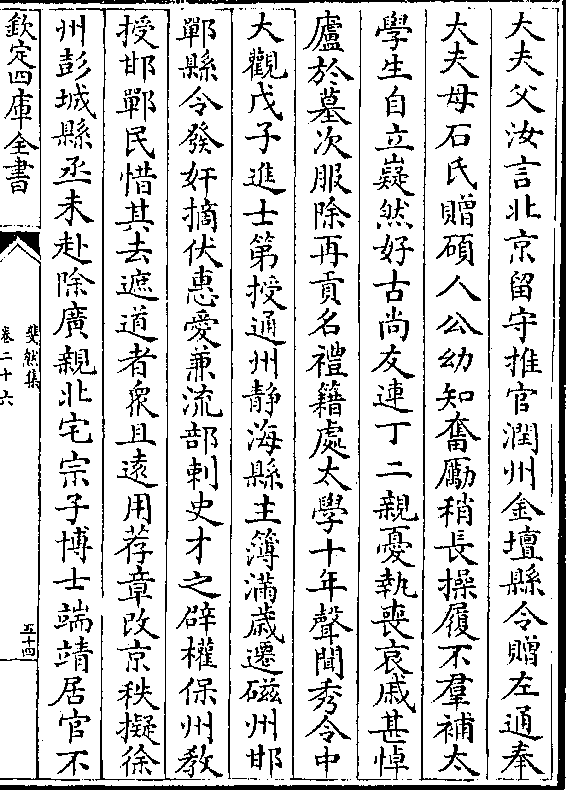 大夫父汝言北京留守推官潤州金壇縣令贈左通奉
大夫母石氏贈碩人公幼知奮勵稍長操履不羣補太
學生自立嶷然好古尚友連丁二親憂執喪哀戚甚悼
廬於墓次服除再貢名禮籍處太學十年聲聞秀令中
大觀戊子進士第授通州静海縣主簿滿歲遷磁州邯
鄲縣令發奸摘伏惠愛兼流部刺史才之辟權保州教
授邯鄲民惜其去遮道者衆且遠用荐章改京秩擬徐
州彭城縣丞未赴除廣親北宅宗子博士端靖居官不
欽定四庫全書
斐然集
卷二十六
五十四